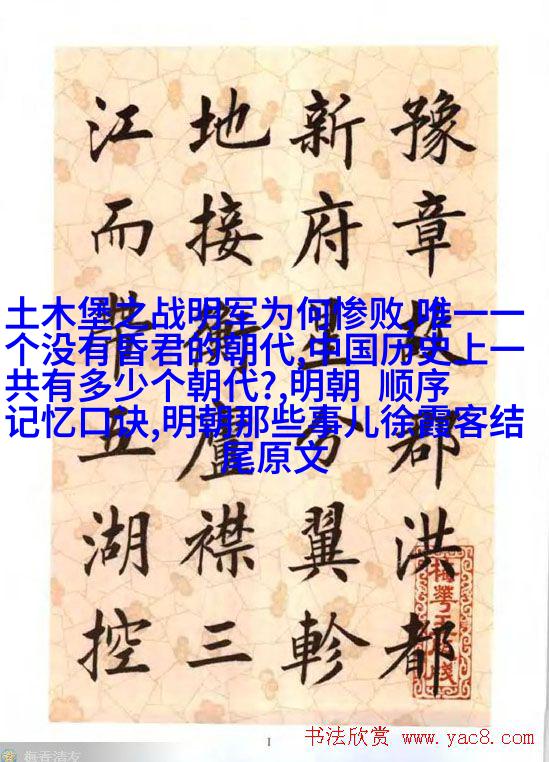 豫章故郡洪都
新府星分翼軫
地接衡廬襟三
江而帶五湖控
土木堡之战明军为何惨败,唯一一
个没有昏君的朝代,中国历史上一
共有多少个朝代?,明朝 顺序
记忆口诀,明朝那些事儿徐霞客结
尾原文
I
书法欣赏 www.yac8.com